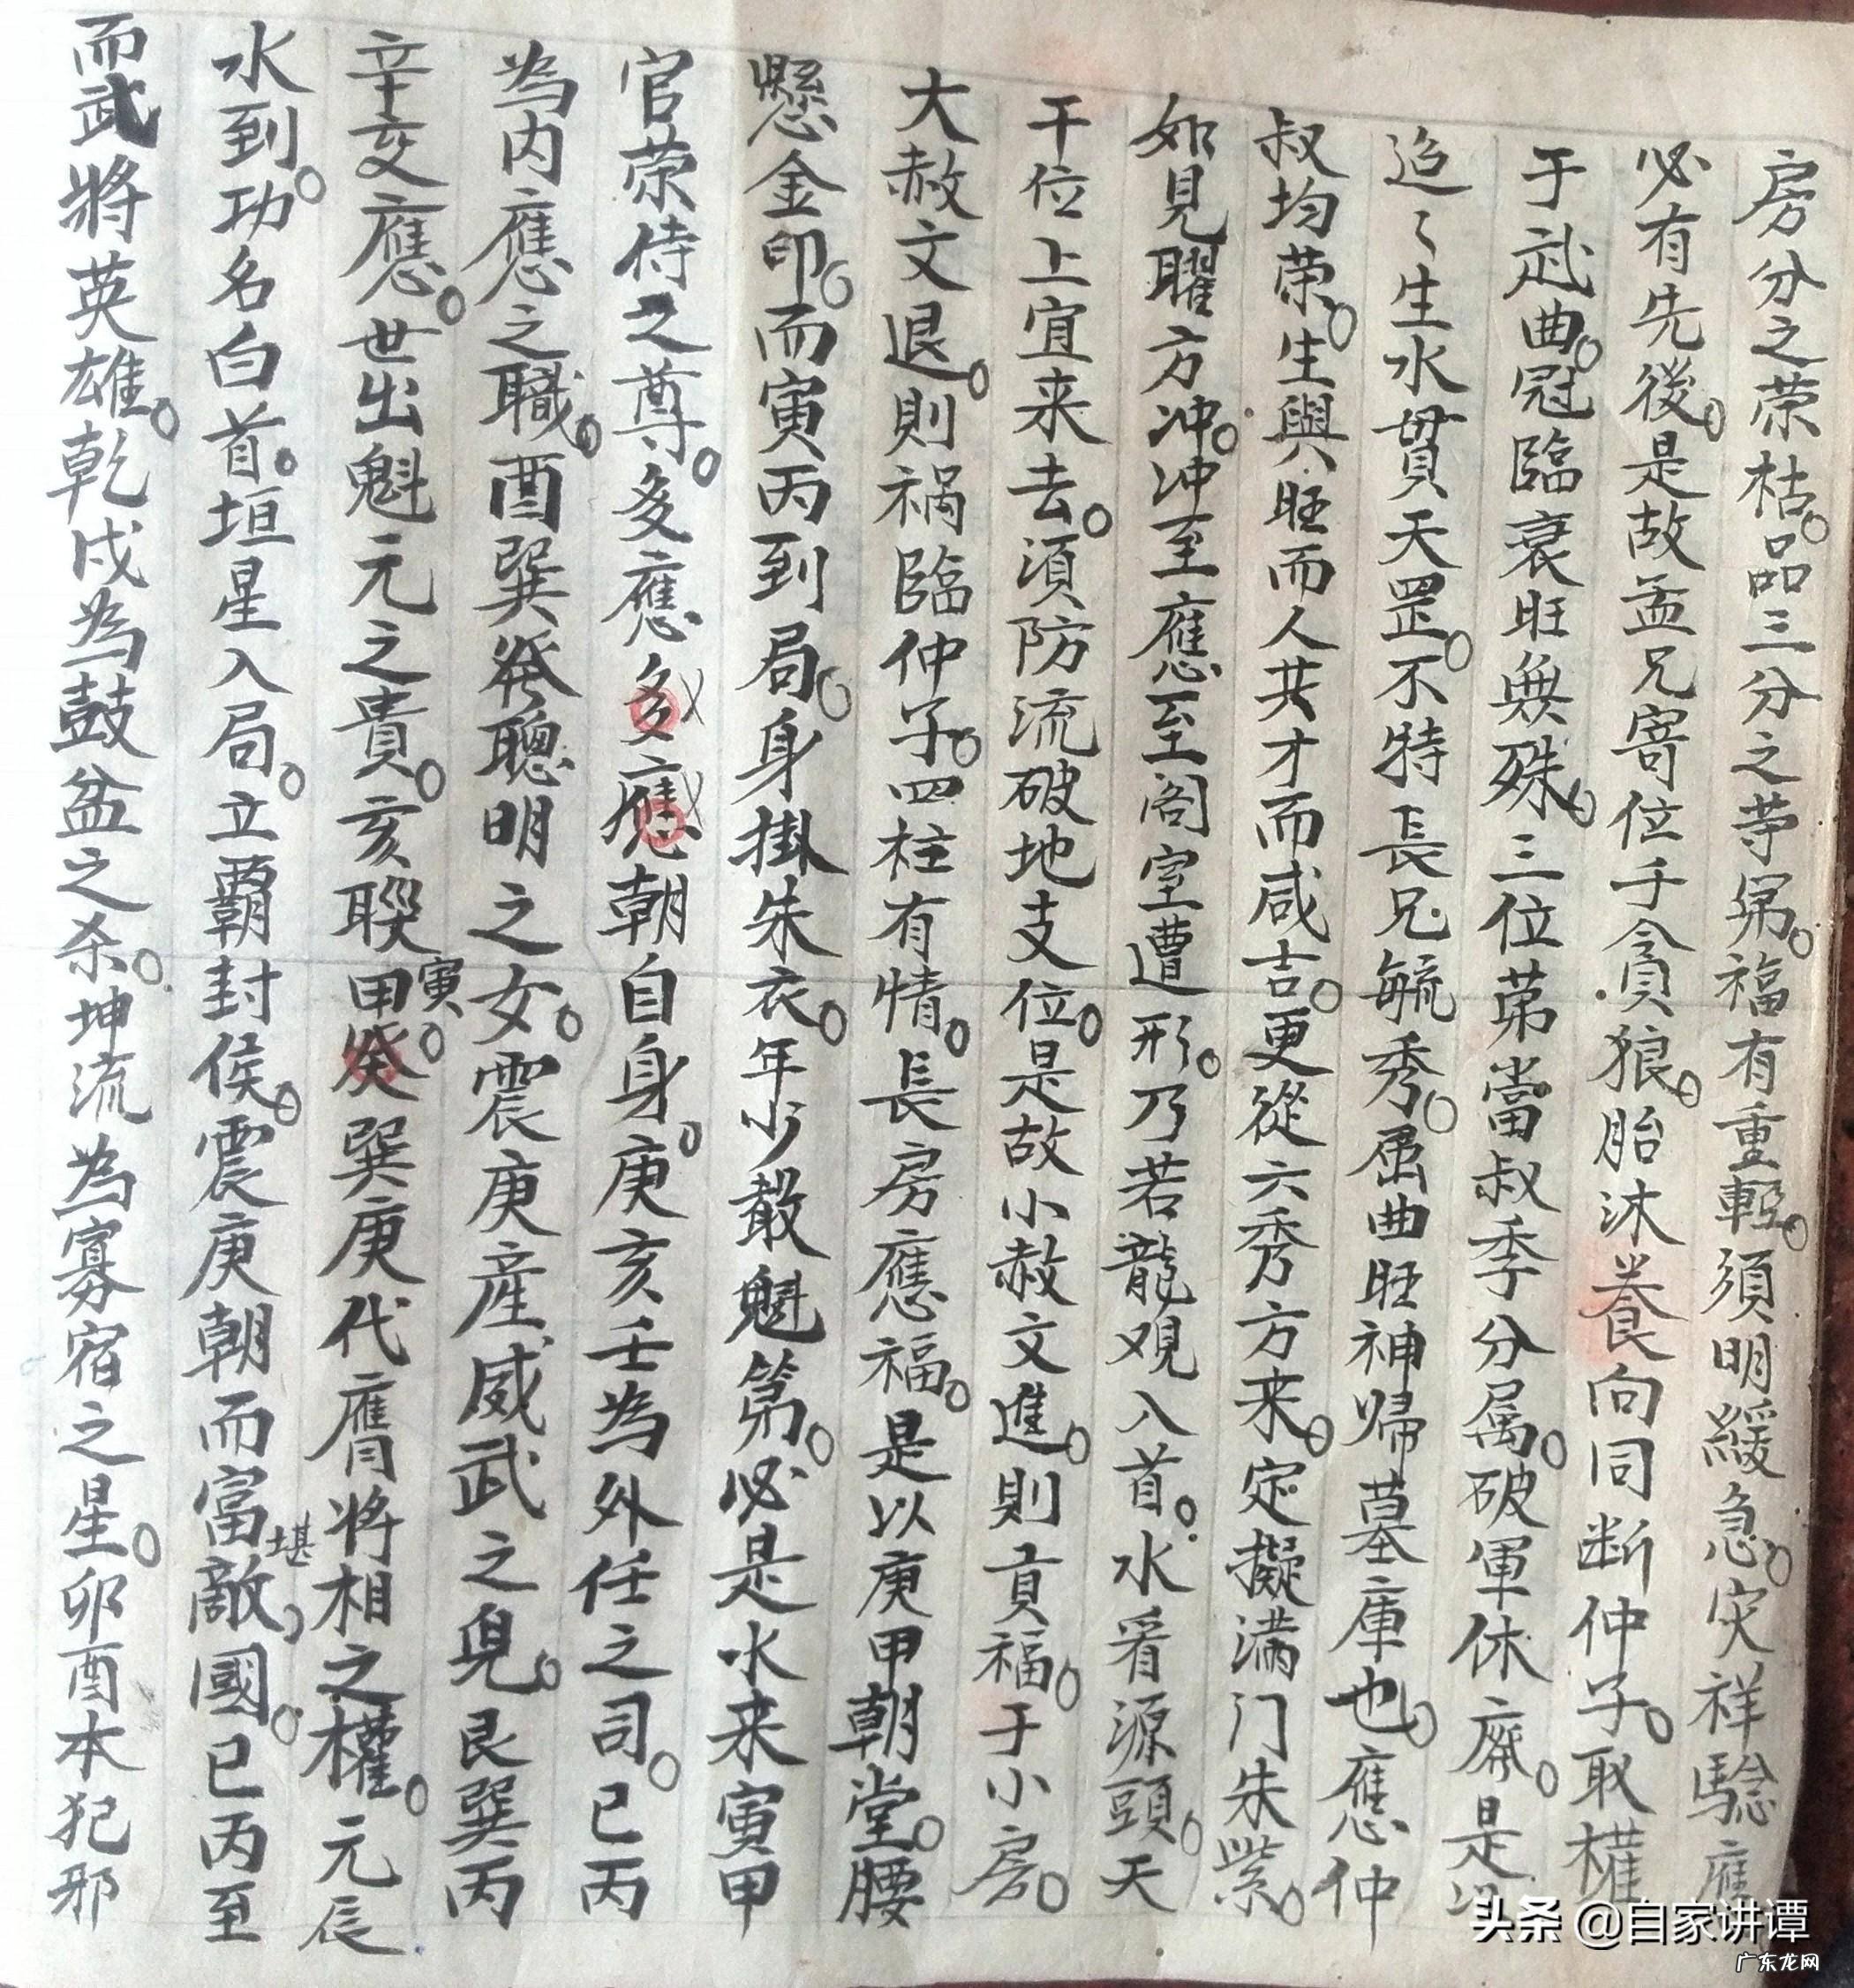 房分之荣枯。品三分之等第。福有重輕。須明緩急。灾祥驗應
必有先後。是故孟兄寄位于貪狼。胎沐養向同断仲子。取權
于武曲。冠臨衰旺無殊。三位苐當叔季分属。破軍休廢。是以
迢々生水貫天罡。不特長兄毓秀。屈曲旺神歸墓庫也。應仲
叔均荣。生與旺而人共才而咸吉。更從六秀方来。定擬满门朱紫。
如見曜方冲。冲至應至阁室遭形。乃若龍观入首。水看源頭。天
干位上宜来去。須防流破地支位。是故小赦文進。則貢福。于小房。
大赦文退。則禍臨仲子。四柱有情。長房應福。是以庚甲朝堂。腰
懸金印。而寅丙到局。身掛朱衣。年少散魁第。必是水来寅甲
官荣侍之尊。多應多應朝自身。庚亥壬為外任之司。已丙
為内應之職。酉巽發聰明之女。震庚産威武之兒。艮巽丙
辛交應。世出魁元之貴。亥聯甲寅。癸巽庚代膺将相之權。元辰
水到。功名白首。垣星入局。立覇封侯。震庚朝而富堪敵國。已丙至
而武將英雄。乾戌為鼓盆之杀。坤流為寡宿之星。卯酉本犯邪
头条 @自家讲谭
广东龙网